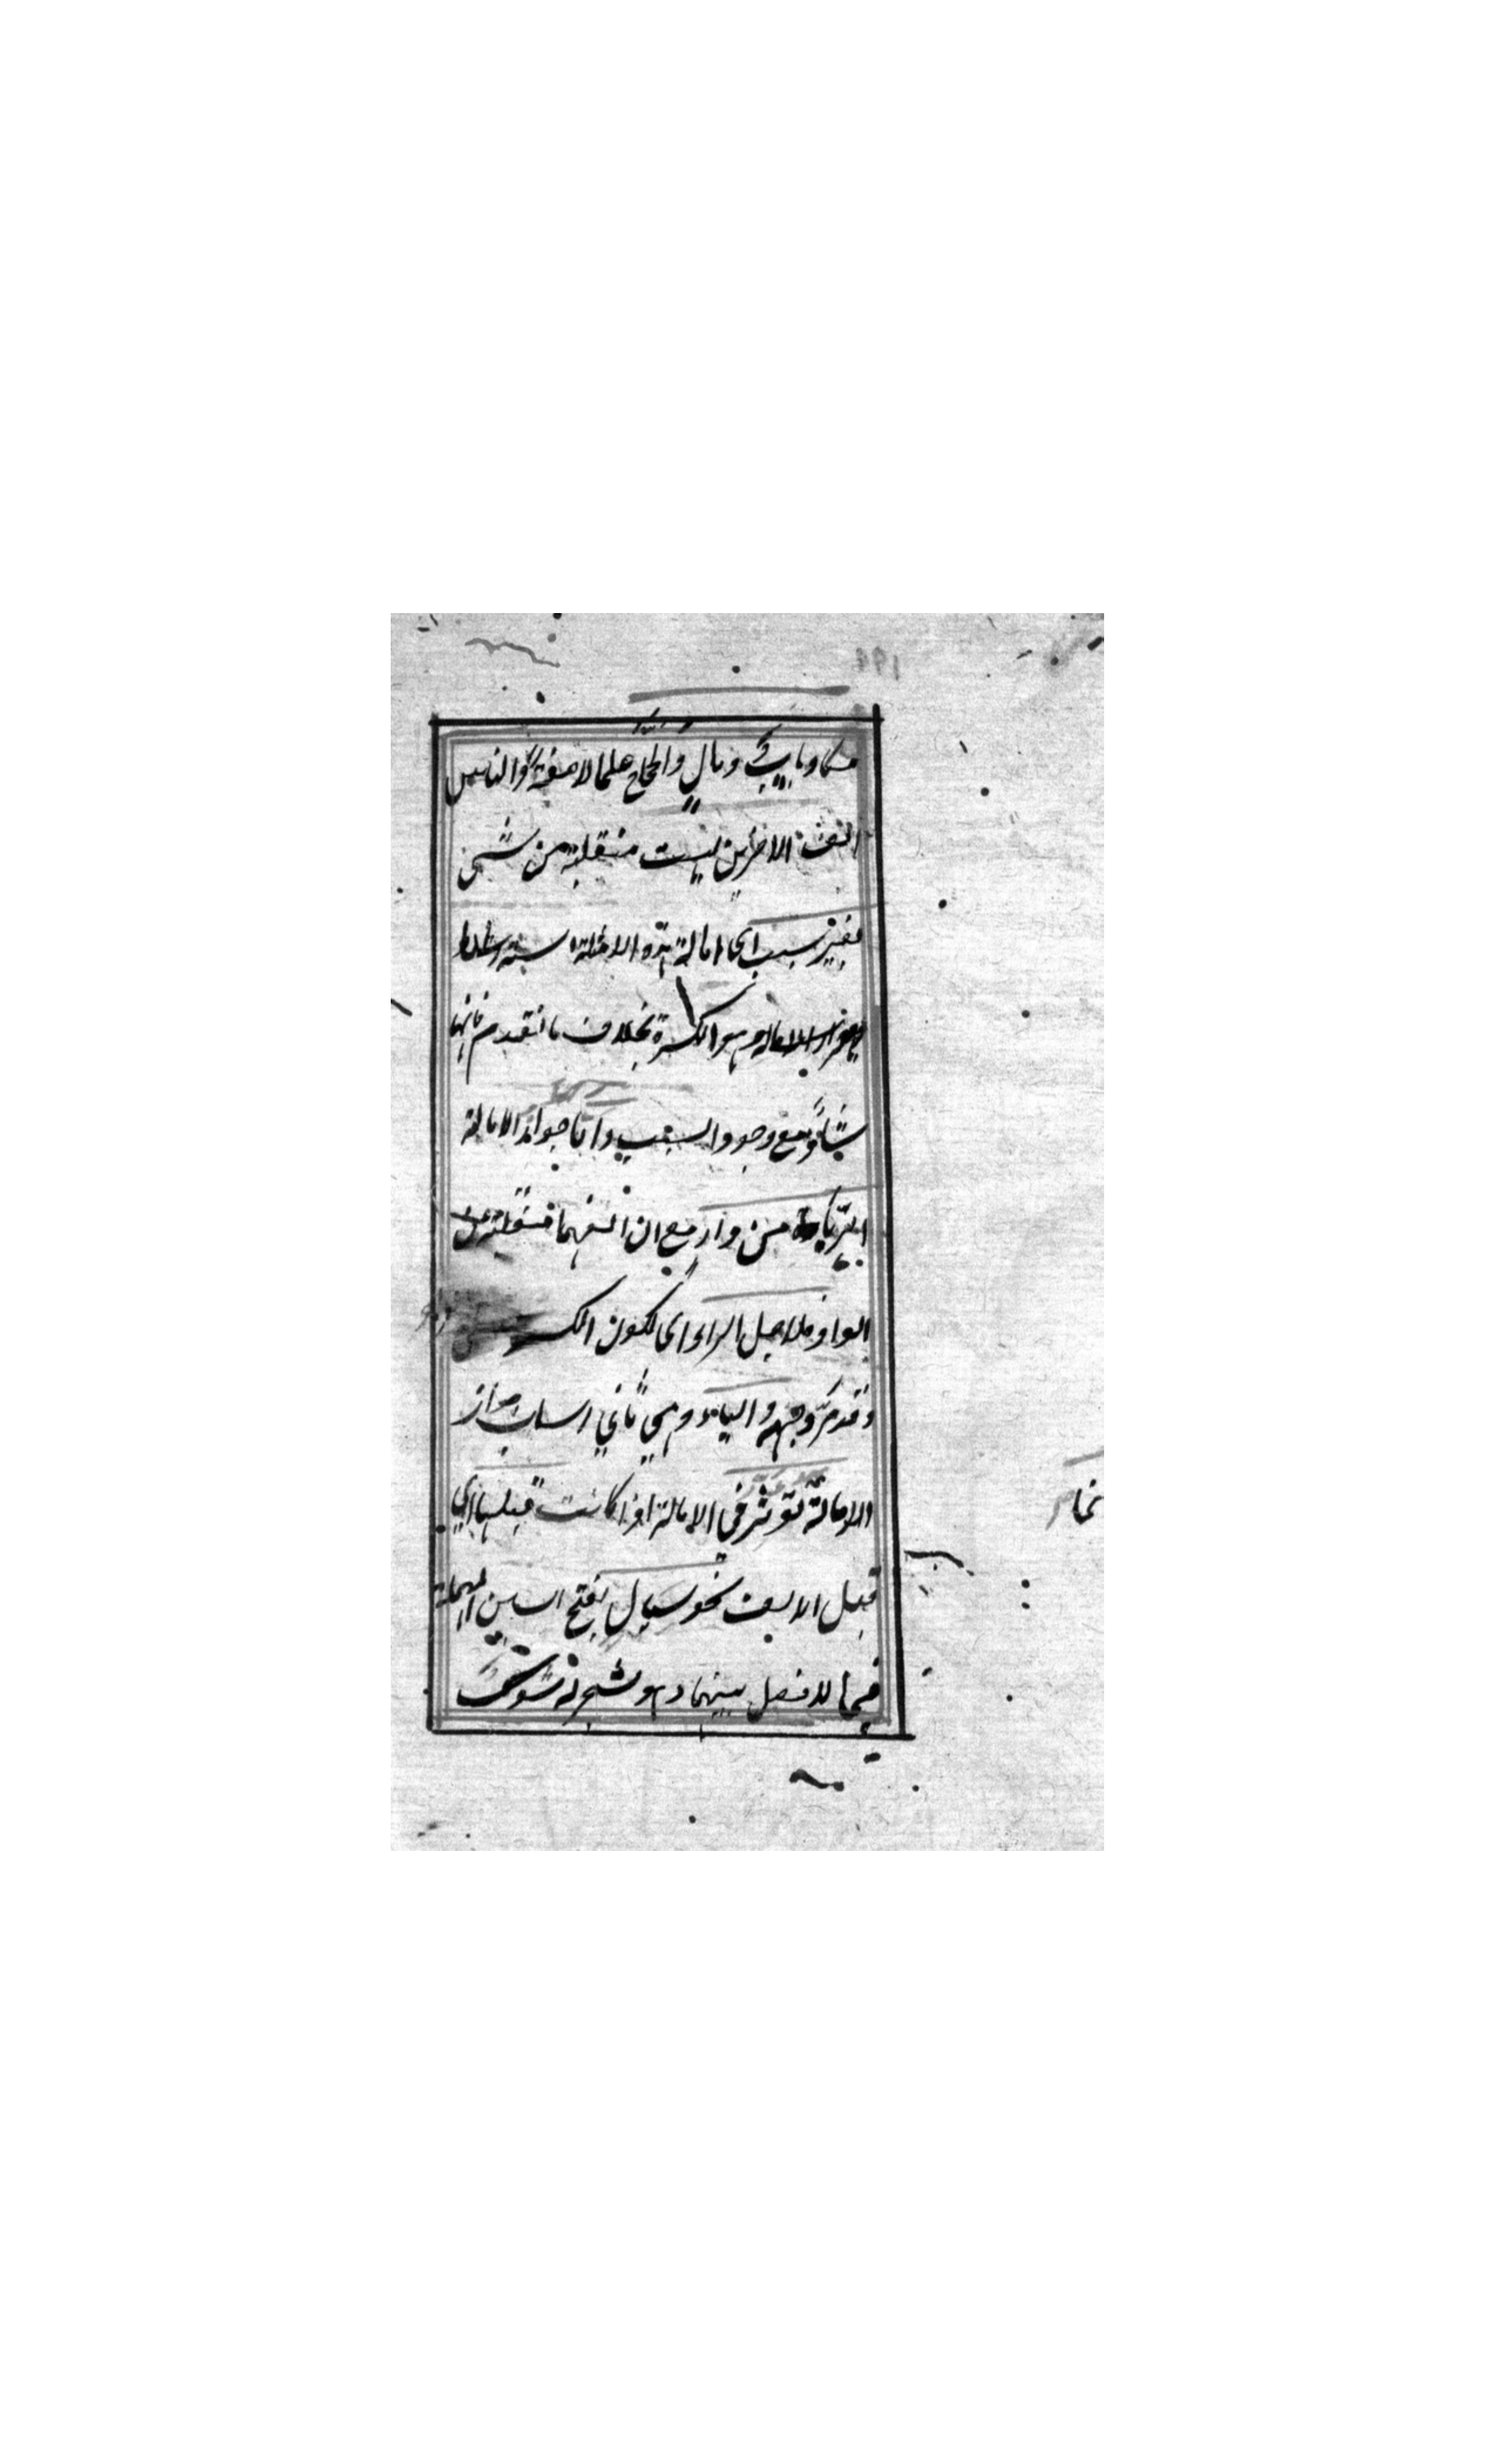 مكا وباب ومال والحجاج علما لا صفة والناس
الف الاخرين ليست منقلبة من شئ
بغير سبب اى امالة هذه الامثلة الستة
الامالة وهو الكسرة بخلاف ما تقدم فانها
شاذ مع وجود السبب واما جواز الامالة
الربا من وار مع ان الفهما منقلبة عن
الواو فلاجل الراء اى لكون الكسر
وقد مر وجهه والياء وهي ثاني اسباب جواز
الامالة تؤثر في الامالة اذا كانت قبلها اي
قبل الالف نحو سيال بفتح السين المهملة
فيما لا فصل بينهما وهو شجر له شوك